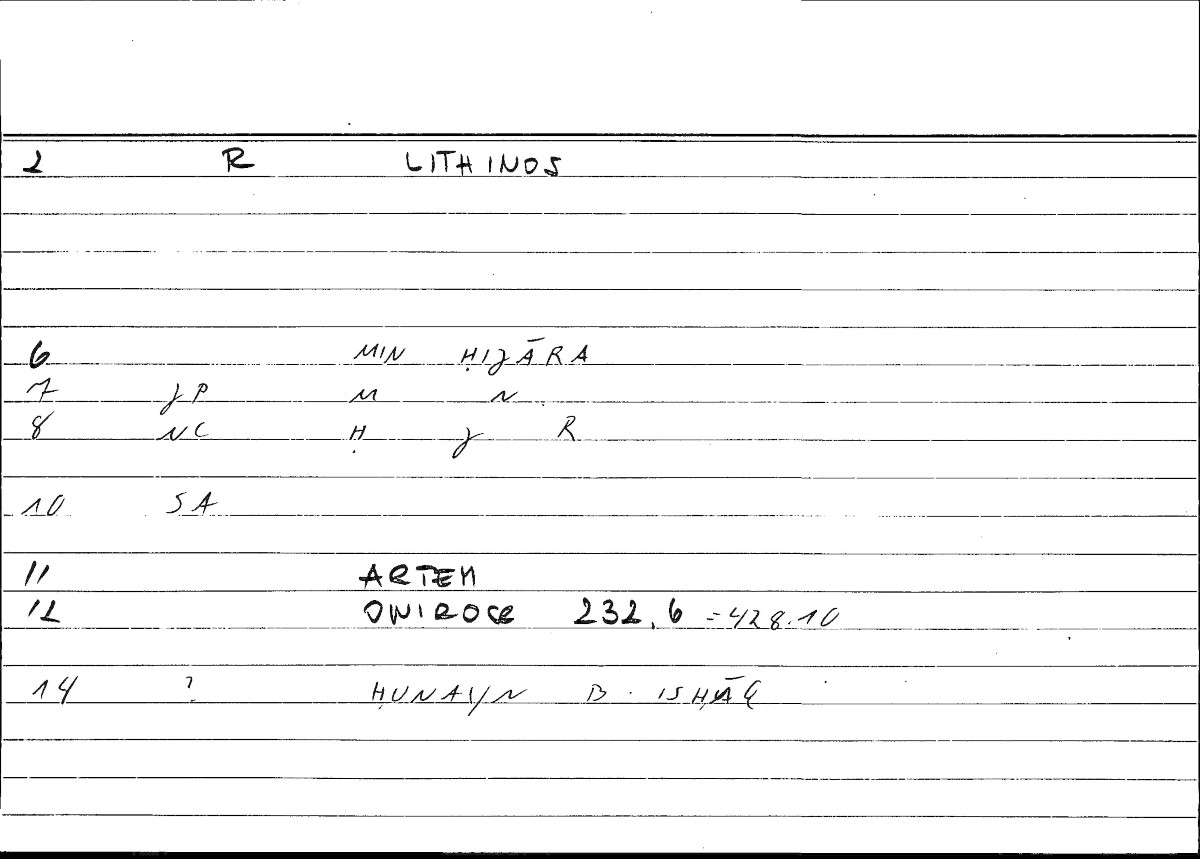 2 R LITHINOS
6 MIN ḤIJĀRA
7 JP M N
8 NC Ḥ J R
10 SA
11 ARTEM
12 ONIROCR 232,6 =428.10
14 ? ḤUNAYN B. ISḤĀQ